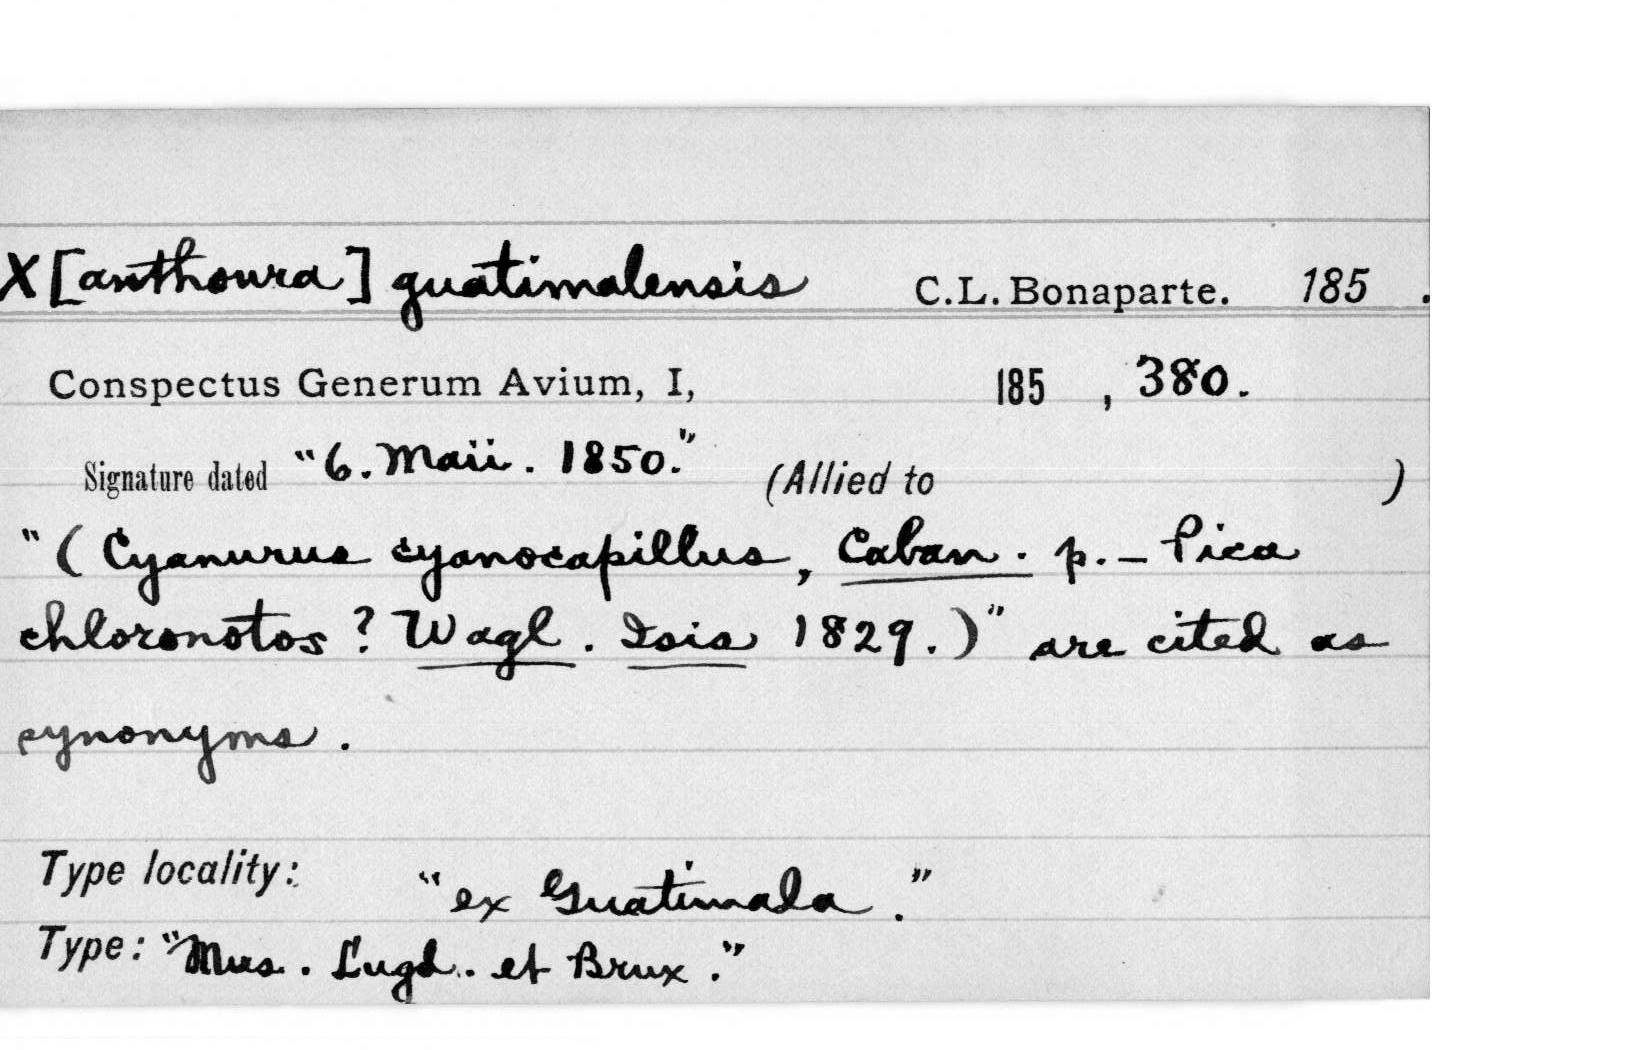 X[anthoura] guatimalensis C.L. Bonaparte. 185 .
Conspectus Generum Avium, I, 185 , 380.
Signature dated "6. Maii. 1850." (Allied to )
"(Cyanurus cyanocapillus, Caban. p. — Pica
chloronotos? Wagl. Isis 1829.)" are cited as
synonyms.
Type locality: "ex Guatimala."
Type: "Mus. Lugd. et Brux."